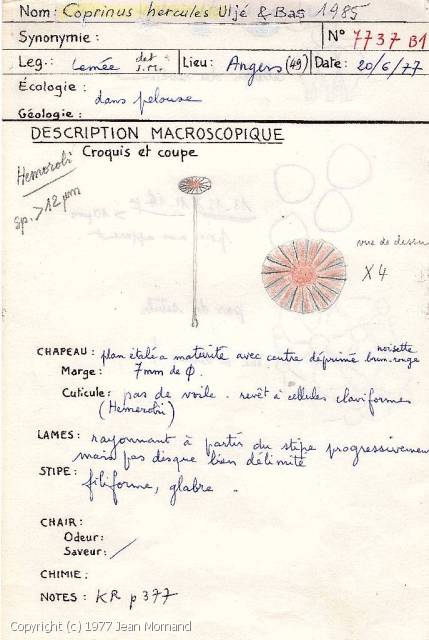 Nom: Coprinus hercules Uljé & Bas 1985
Synonymie :
N° 7737 B1
Leg.: Lemée det J.M. Lieu: Angers (49) Date: 20/6/77
Écologie : dans pelouse
Géologie :
DESCRIPTION MACROSCOPIQUE
Croquis et coupe
Hemerobi
sp. > 12 µm
vue de dessus
X4
CHAPEAU : plan étalé à maturité avec centre déprimé noisette brun-rouge
Marge : 7mm de Φ.
Cuticule : pas de voile. revêt à cellules claviformes
(Hemerobii)
LAMES : rayonnant à partir du stipe progressivement
mais pas disque bien délimité
STIPE : filiforme, glabre.
CHAIR :
Odeur :
Saveur :
CHIMIE :
NOTES : KR p 377
Copyright (c) 1977 Jean Mornand